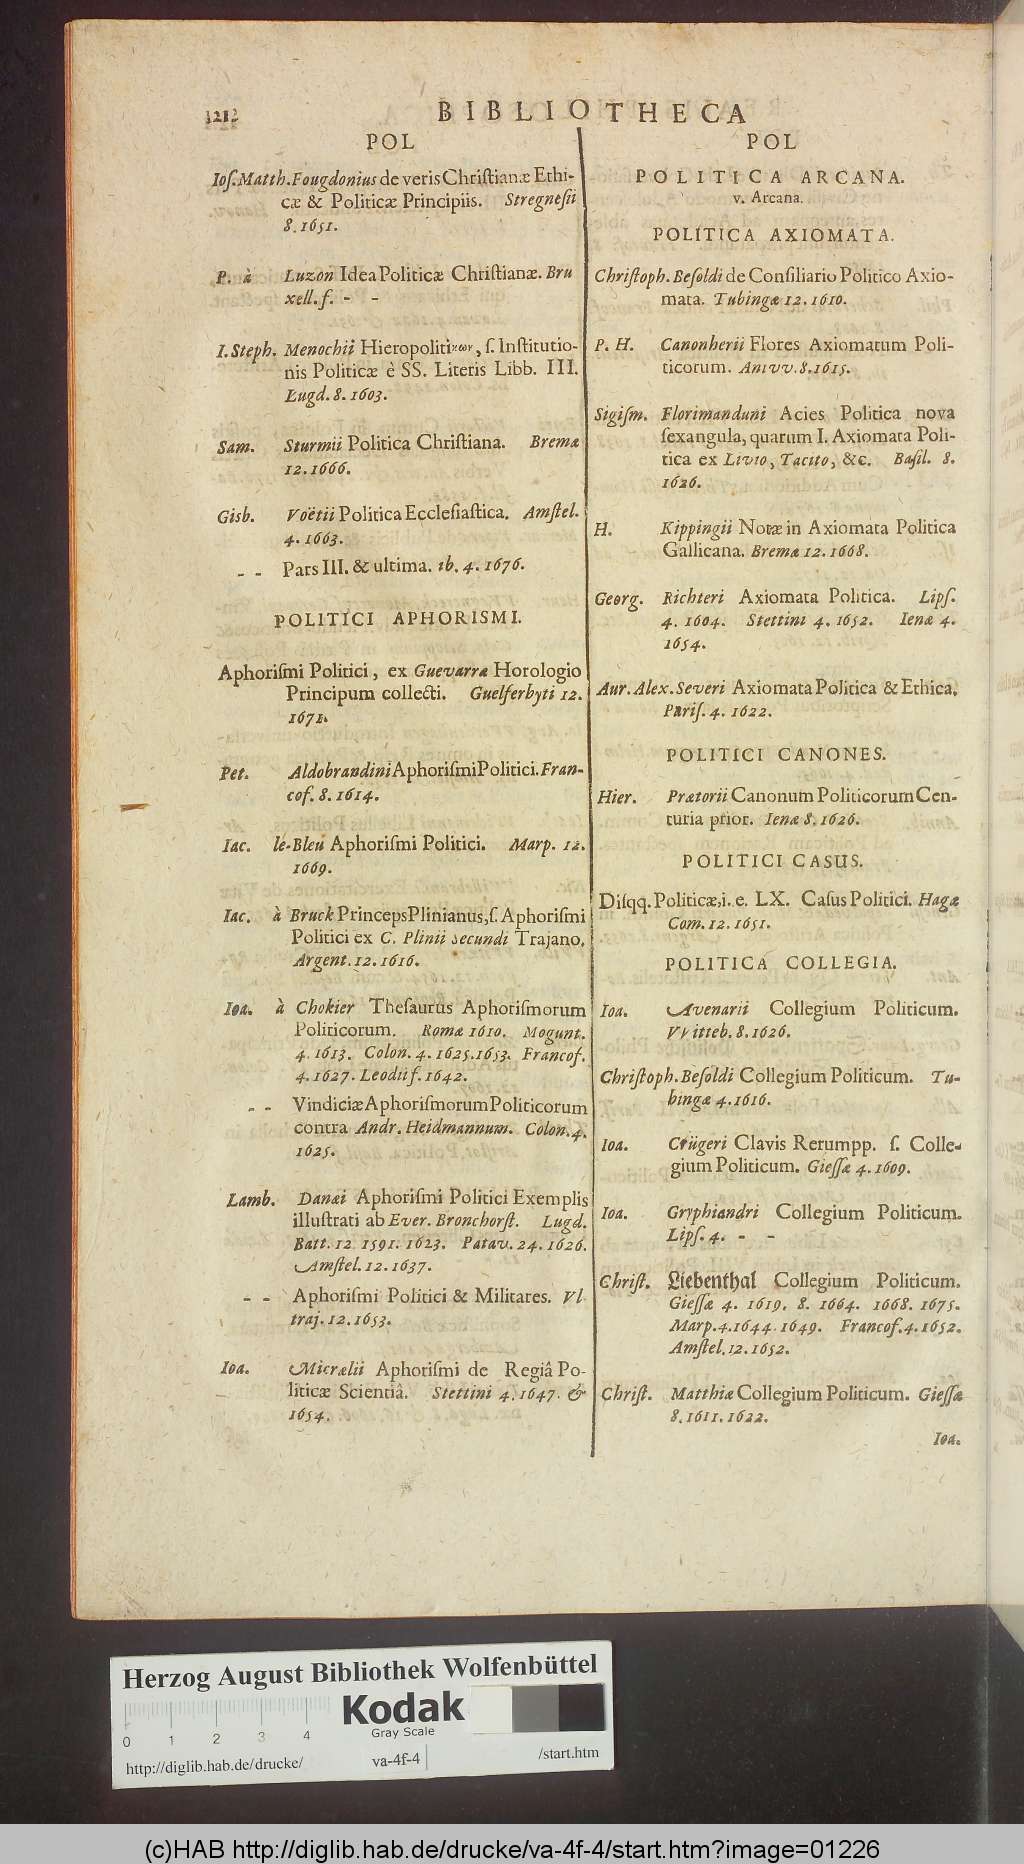 BIBLIOTHECA
POL
Ioſ. Matth. Fougdonius de veris Chriſtianæ Ethi-
cæ & Politicæ Principiis. Stregneſii
8. 1651.
P. à Luzon Idea Politicæ Chriſtianæ. Bru
xell. f. - -
I. Steph. Menochii Hieropoliti, ſ. Inſtitutio-
nis Politicæ è SS. Literis Libb. III.
Lugd. 8. 1603.
Sam. Sturmii Politica Chriſtiana. Bremæ
12. 1666.
Gisb. Voëtii Politica Eccleſiaſtica. Amſtel.
4. 1663.
- - Pars III. & ultima. ib. 4. 1676.
POLITICI APHORISMI.
Aphoriſmi Politici, ex Guevarræ Horologio
Principum collecti. Guelferbyti 12.
1671.
Pet. Aldobrandini Aphoriſmi Politici. Fran-
cof. 8. 1614.
Iac. le-Bleu Aphoriſmi Politici. Marp. 12.
1669.
Iac. à Bruck Princeps Plinianus, ſ. Aphoriſmi
Politici ex C. Plinii Secundi Trajano.
Argent. 12. 1616.
Ioa. à Chokier Theſaurus Aphoriſmorum
Politicorum. Romæ 1610. Mogunt.
4. 1613. Colon. 4. 1625. 1653. Francof.
4. 1627. Leodii f. 1642.
- - Vindiciæ Aphoriſmorum Politicorum
contra Andr. Heidmannum. Colon. 4.
1625.
Lamb. Danæi Aphoriſmi Politici Exemplis
illuſtrati ab Ever. Bronchorſt. Lugd.
Batt. 12. 1591. 1623. Patav. 24. 1626.
Amſtel. 12. 1637.
- - Aphoriſmi Politici & Militares. Vl
traj. 12. 1653.
Ioa. Micrælii Aphoriſmi de Regiâ Po-
liticæ Scientiâ. Stettini 4. 1647. &
1654.
POL
POLITICA ARCANA.
v. Arcana.
POLITICA AXIOMATA.
Chriſtoph. Beſoldi de Conſiliario Politico Axio-
mata. Tubingæ 12. 1610.
P. H. Canonherii Flores Axiomatum Poli-
ticorum. Antvv. 8. 1615.
Sigiſm. Florimanduni Acies Politica nova
ſexangula, quarum I. Axiomata Poli-
tica ex Livio, Tacito, &c. Baſil. 8.
1626.
H. Kippingii Notæ in Axiomata Politica
Gallicana. Bremæ 12. 1668.
Georg. Richteri Axiomata Politica. Lipſ.
4. 1604. Stettini 4. 1652. Ienæ 4.
1654.
Aur. Alex. Severi Axiomata Politica & Ethica.
Pariſ. 4. 1622.
POLITICI CANONES.
Hier. Prætorii Canonum Politicorum Cen-
turia prior. Ienæ 8. 1626.
POLITICI CASUS.
Diſqq. Politicæ, i. e. LX. Caſus Politici. Hagæ
Com. 12. 1651.
POLITICA COLLEGIA.
Ioa. Avenarii Collegium Politicum.
VVitteb. 8. 1626.
Chriſtoph. Beſoldi Collegium Politicum. Tu-
bingæ 4. 1616.
Ioa. Crügeri Clavis Rerumpp. ſ. Colle-
gium Politicum. Gieſſæ 4. 1609.
Ioa. Gryphiandri Collegium Politicum.
Lipſ. 4. - -
Chriſt. Liebenthal Collegium Politicum.
Gieſſæ 4. 1619. 8. 1664. 1668. 1675.
Marp. 4. 1644. 1649. Francof. 4. 1652.
Amſtel. 12. 1652.
Chriſt. Matthiæ Collegium Politicum. Gieſſæ
8. 1611. 1622.
Ioa.
Herzog August Bibliothek Wolfenbüttel
Kodak
Gray Scale
0 1 2 3 4
http://diglib.hab.de/drucke/ va-4f-4 /start.htm
(c)HAB http://diglib.hab.de/drucke/va-4f-4/start.htm?image=01226